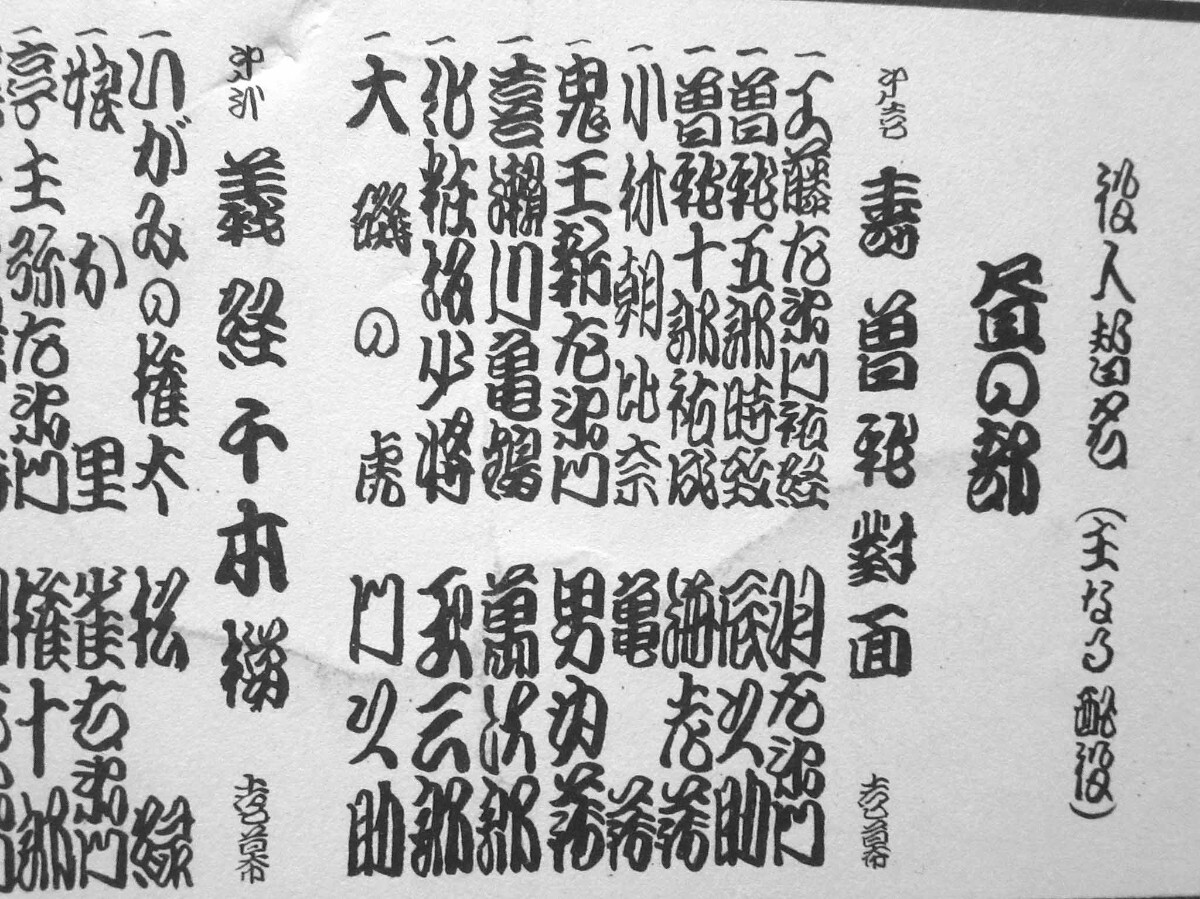 役人替名（主なる配役）
昼の部
第壱 寿曽我對面 壱幕
一 工藤左衛門祐経 羽左衛門
一 曽我五郎時致 辰之助
一 曽我十郎祐成 海老蔵
一 小林朝比奈 亀蔵
一 鬼王新左衛門 男女蔵
一 喜瀬川亀鶴 萬次郎
一 化粧坂少将 玉三郎
一 大磯の虎 門之助
第弐 義経千本桜 壱幕
一 いがみの権太 松緑
一 娘お里 雀右衛門
一 亭主弥左衛門 権十郎